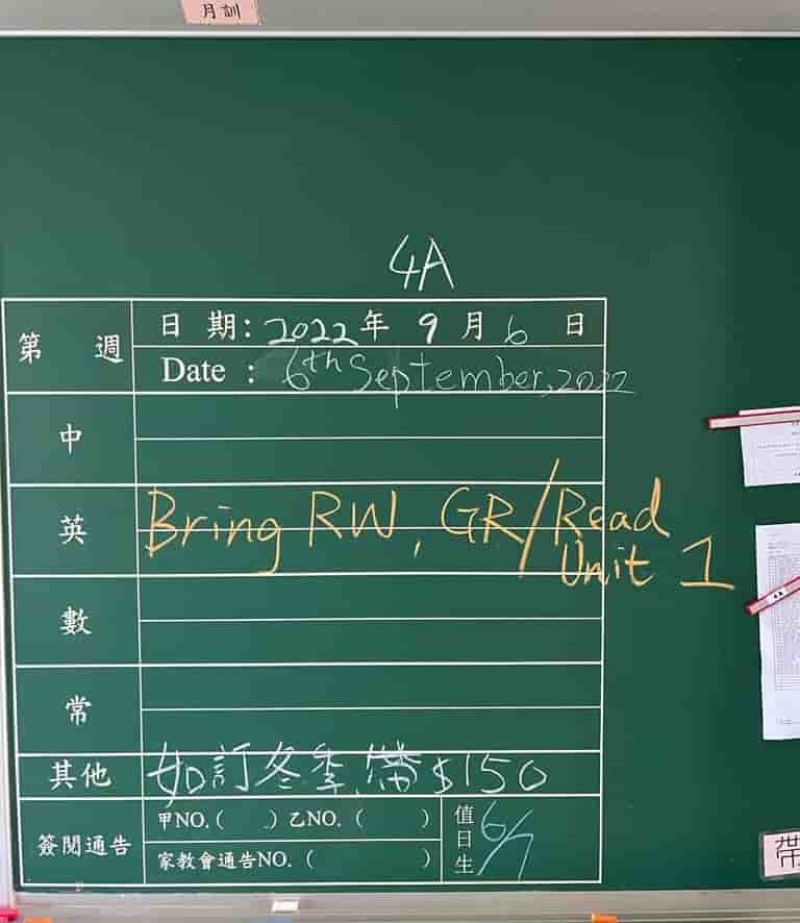 月訓
4A
第 週
日 期: 2022年 9 月 6 日
Date : 6th September, 2022
中
英
Bring RW, GR/Read
Unit 1
數
常
其他
如訂冬季, 帶 $150
簽閱通告
甲NO.( ) 乙NO. ( )
家教會通告NO. ( )
值日生
6/7
帶